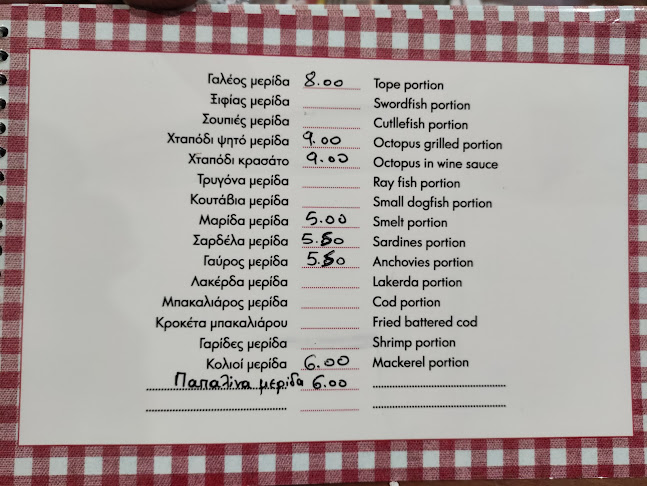 Γαλέος μερίδα 8.00 Tope portion
Ξιφίας μερίδα Swordfish portion
Σουπιές μερίδα Cutllefish portion
Χταπόδι ψητό μερίδα 9.00 Octopus grilled portion
Χταπόδι κρασάτο 9.00 Octopus in wine sauce
Τρυγόνα μερίδα Ray fish portion
Κουτάβια μερίδα Small dogfish portion
Μαρίδα μερίδα 5.00 Smelt portion
Σαρδέλα μερίδα 5.50 Sardines portion
Γαύρος μερίδα 5.50 Anchovies portion
Λακέρδα μερίδα Lakerda portion
Μπακαλιάρος μερίδα Cod portion
Κροκέτα μπακαλιάρου Fried battered cod
Γαρίδες μερίδα Shrimp portion
Κολιοί μερίδα 6.00 Mackerel portion
Παπαλίνα μερίδα 6.00